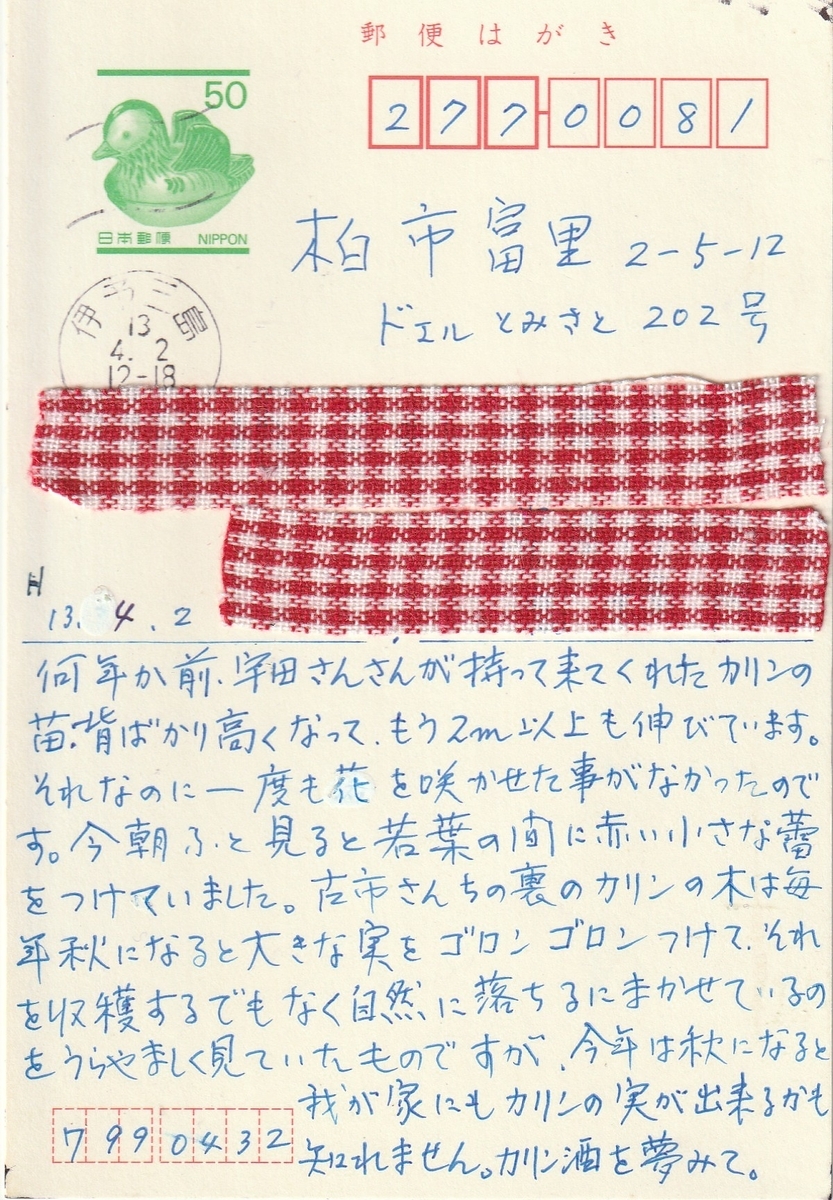 郵便はがき
50
日本郵便 NIPPON
277-0081
柏市富里 2-5-12
ドエル とみさと 202号
伊予三島
13
4. 2
12-18
H
13. 4. 2
何年か前、宇田さんさんが持って来てくれたカリンの
苗、背ばかり高くなって、もう2m以上も伸びています。
それなのに一度も花を咲かせた事がなかったので
す。今朝ふと見ると若葉の間に赤い小さな蕾
をつけていました。古市さんちの裏のカリンの木は毎
年秋になると大きな実をゴロンゴロンつけて、それ
を収穫するでもなく自然に落ちるにまかせているの
をうらやましく見ていたものですが、今年は秋になると
我が家にもカリンの実が出来るかも
知れません。カリン酒を夢みて。
7990432